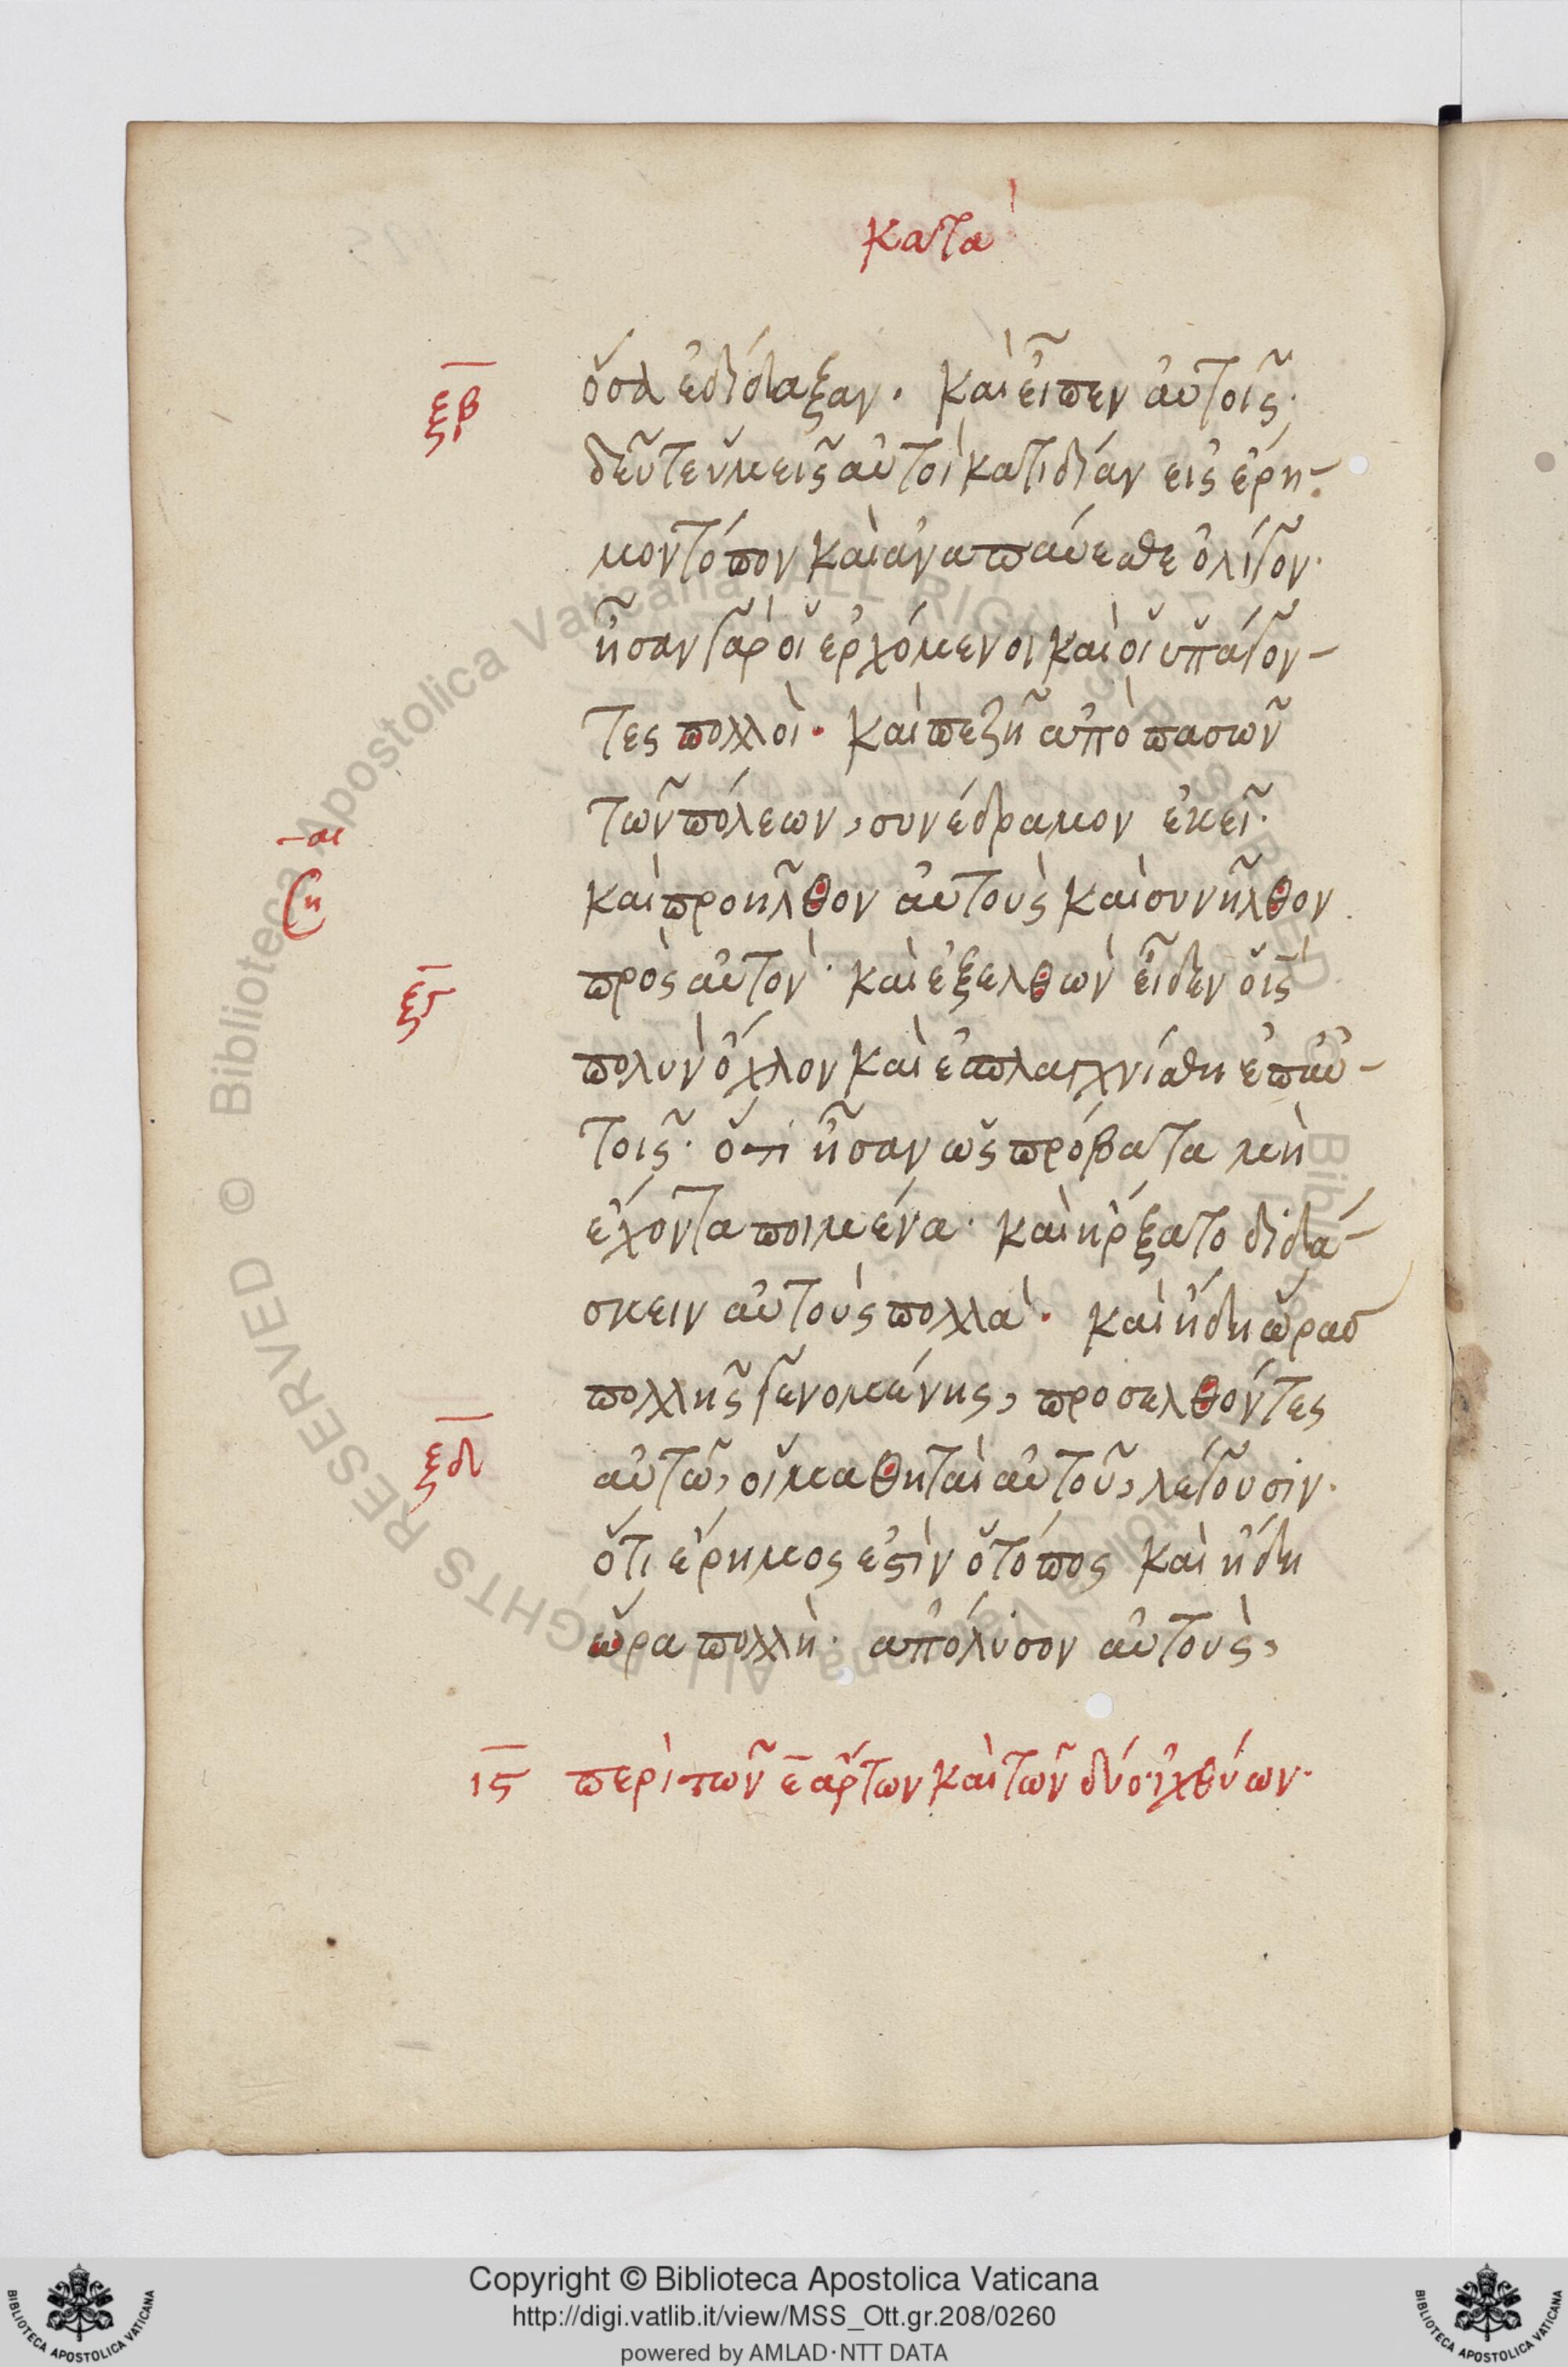 κατὰ
ξβ ὅσα ἐδίδαξαν. καὶ εἶπεν αὐτοῖς·
δεῦτε ὑμεῖς αὐτοὶ κατιδίαν εἰς ἔρη-
μον τόπον καὶ ἀναπαύεσθε ὀλίγον·
ἦσαν γὰρ οἱ ἐρχόμενοι καὶ οἱ ὑπάγον-
τες πολλοί. καὶ πεζῇ ἀπὸ πασῶν
τῶν πόλεων, συνέδραμον ἐκεῖ·
καὶ προῆλθον αὐτοὺς καὶ συνῆλθον
ξγ πρὸς αὐτόν· καὶ ἐξελθὼν εἶδεν ὁ ις
πολὺν ὄχλον καὶ ἐσπλαγχνίσθη ἐπ αὐ-
τοῖς· ὅτι ἦσαν ὡς πρόβατα μὴ
ἔχοντα ποιμένα· καὶ ἤρξατο διδά-
σκειν αὐτοὺς πολλά. καὶ ἤδη ὥρας
πολλῆς γενομένης, προσελθόντες
ξδ αὐτῷ, οἱ μαθηταὶ αὐτοῦ, λέγουσιν·
ὅτι ἔρημος ἐστὶν ὁ τόπος καὶ ἤδη
ὥρα πολλή· ἀπόλυσον αὐτούς,
ις περὶ τῶν ε ἄρτων καὶ τῶν δύο ἰχθύων·
© Biblioteca Apostolica Vaticana ALL RIGHTS RESERVED
Copyright © Biblioteca Apostolica Vaticana
http://digi.vatlib.it/view/MSS_Ott.gr.208/0260
powered by AMLAD·NTT DATA
BIBLIOTECA APOSTOLICA VATICANA
BIBLIOTECA APOSTOLICA VATICANA